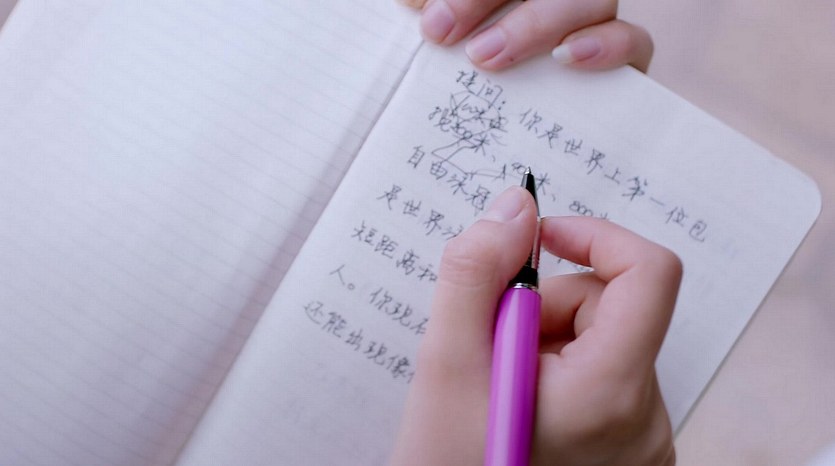 提问：你是世界上第一位包
揽 米、 米、800
自由泳冠
是世界
短距离和
人。你现在
还能出现像